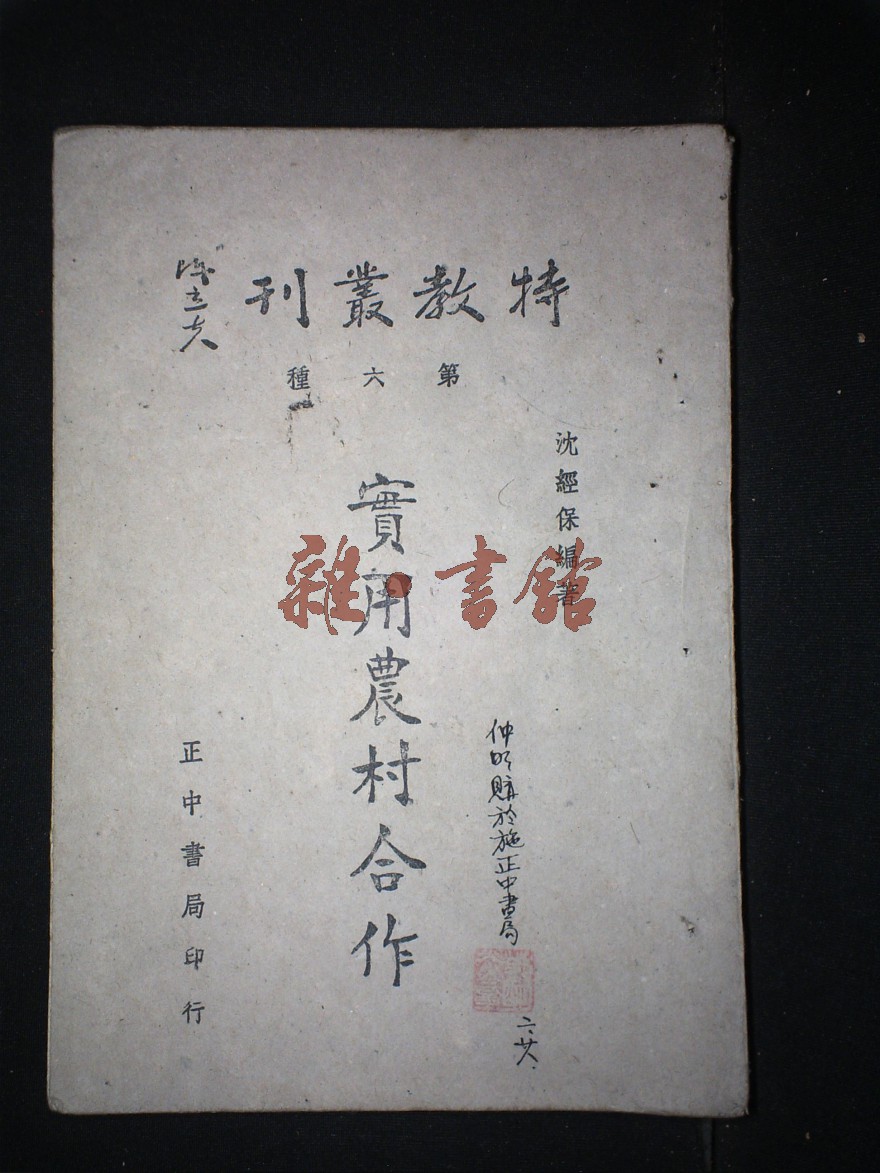 特教叢刊
陳立夫
第六種
沈經保編著
實用農村合作
正中書局印行
仲明購於施正中書局
六廿八
雜·書館